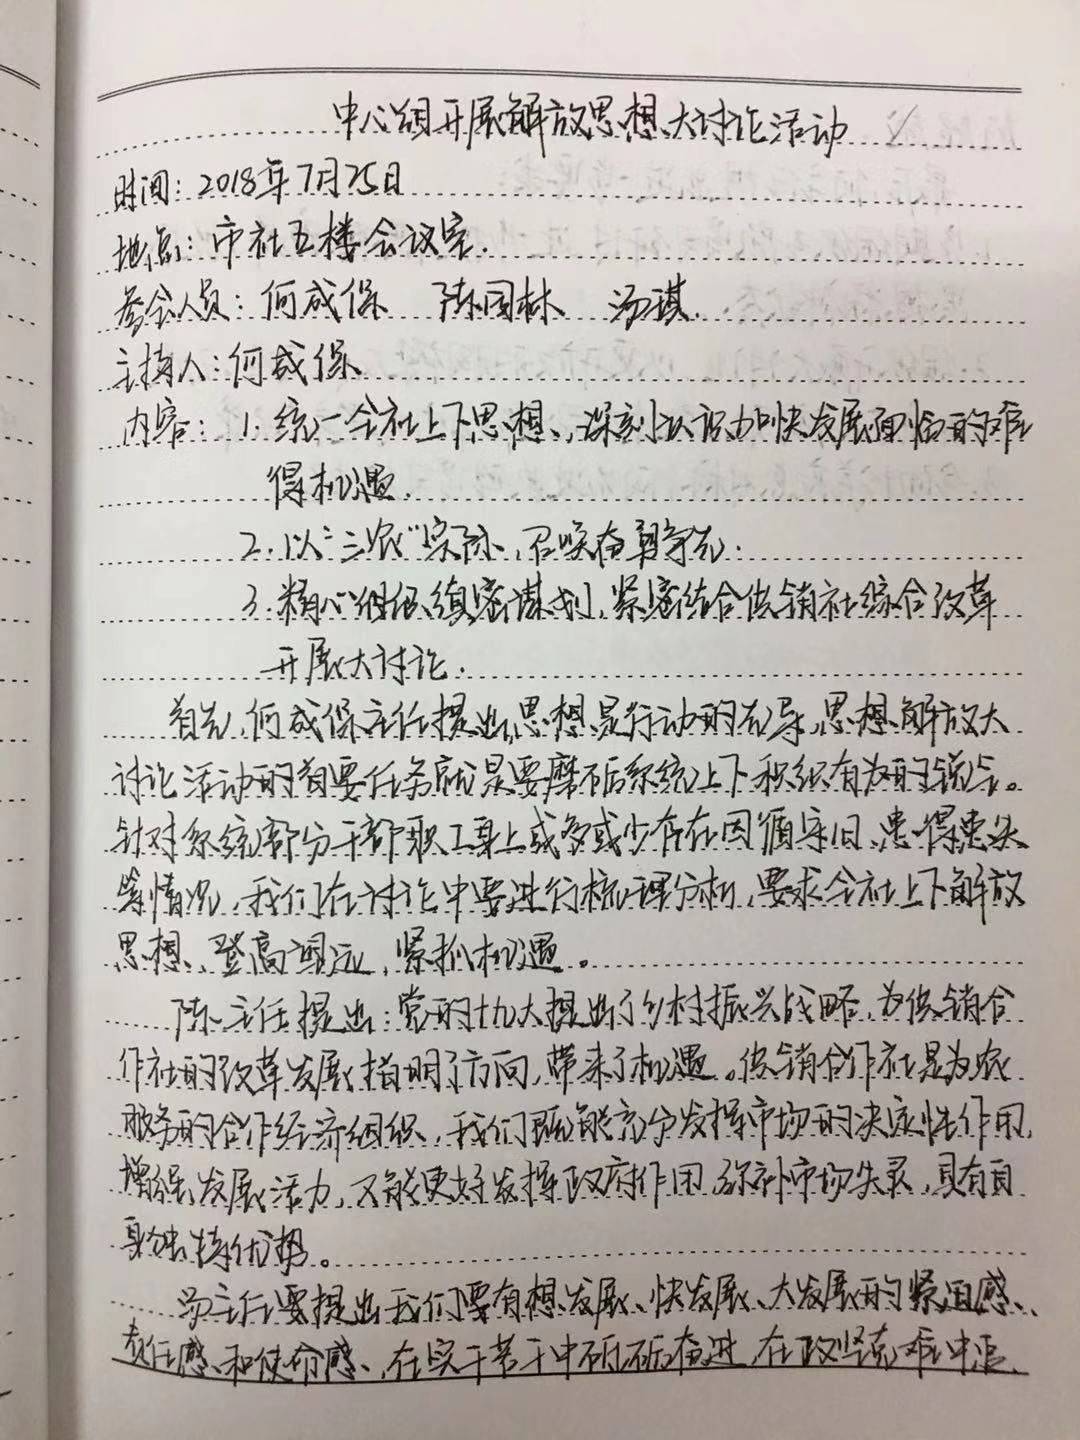 中心组开展解放思想大讨论活动 ✓
时间：2018年7月25日
地点：市社五楼会议室.
参会人员：何成保 陈国林 汤琪.
主持人：何成保
内容：1.统一全社上下思想、深刻认识加快发展面临的难
得机遇.
2.以“三农”实际,召唤奋勇争先.
3.精心组织、缜密谋划,紧密结合供销社综合改革
开展大讨论.
首先,何成保主任提出,思想是行动的先导,思想解放大
讨论活动的首要任务就是要磨砺系统上下积极有为的锐气。
针对系统部分干部职工身上或多或少存在因循守旧、患得患失
等情况,我们在讨论中要进行梳理分析,要求全社上下解放
思想、登高望远,紧抓机遇。
陈主任提出:党的十九大提出了乡村振兴战略,为供销合
作社的改革发展指明了方向,带来了机遇。供销合作社是为农
服务的合作经济组织、我们既能充分发挥市场的决定性作用,
增强发展活力,又能更好发挥政府作用,弥补市场失灵,具有自
身独特优势。
汤主任要提出我们要有想发展、快发展、大发展的紧迫感、
责任感、和使命感、在实干苦干中砥砺奋进,在攻坚克难中